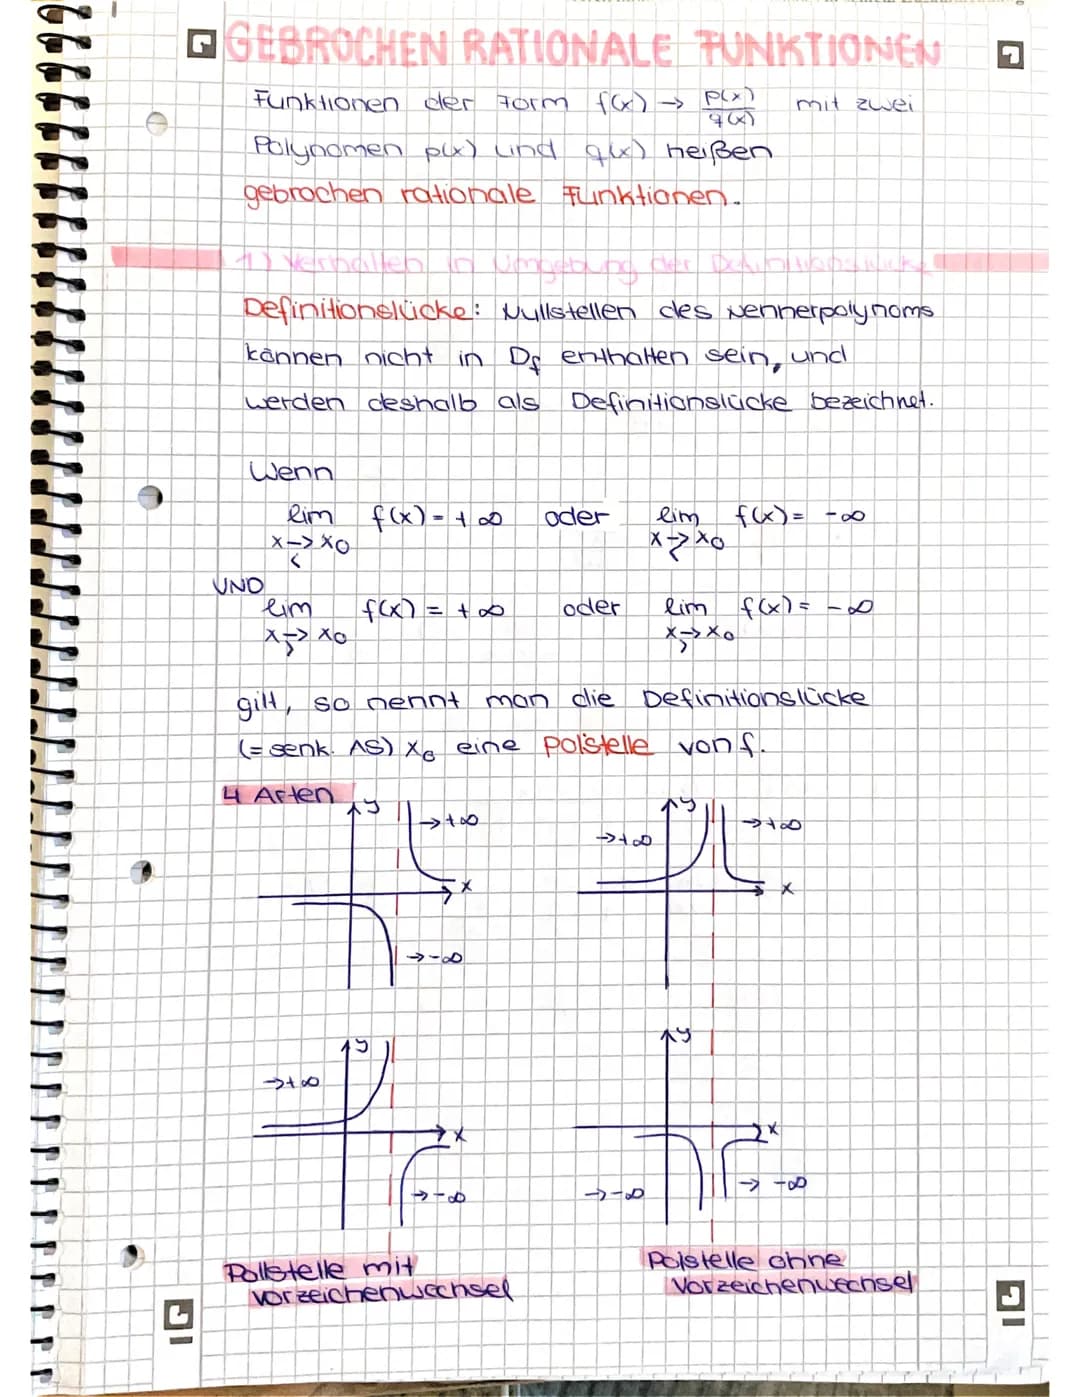 GEBROCHEN RATIONALE FUNKTIONEN
Funktionen der Form f(x) → p(x)/q(x) mit zwei
Polynomen p(x) und q(x) heißen
gebrochen rationale Funktionen.
1) Verhalten in Umgebung der Definitionslücke
Definitionslücke: Nullstellen des Nennerpolynoms
können nicht in Df enthalten sein, und
werden deshalb als Definitionslücke bezeichnet.
Wenn
lim f(x) = +∞ oder lim f(x) = -∞
x→x0 x→x0
< <
UND
lim f(x) = +∞ oder lim f(x) = -∞
x→x0 x→x0
> >
gilt, so nennt man die Definitionslücke
(= senk. AS) x0 eine Polstelle von f.
4 Arten
y →+∞ y →+∞
→+∞
x x
→-∞
y y
→+∞
x x
→-∞ →-∞ → -∞
Pollstelle mit Polstelle ohne
Vorzeichenwechsel Vorzeichenwechsel